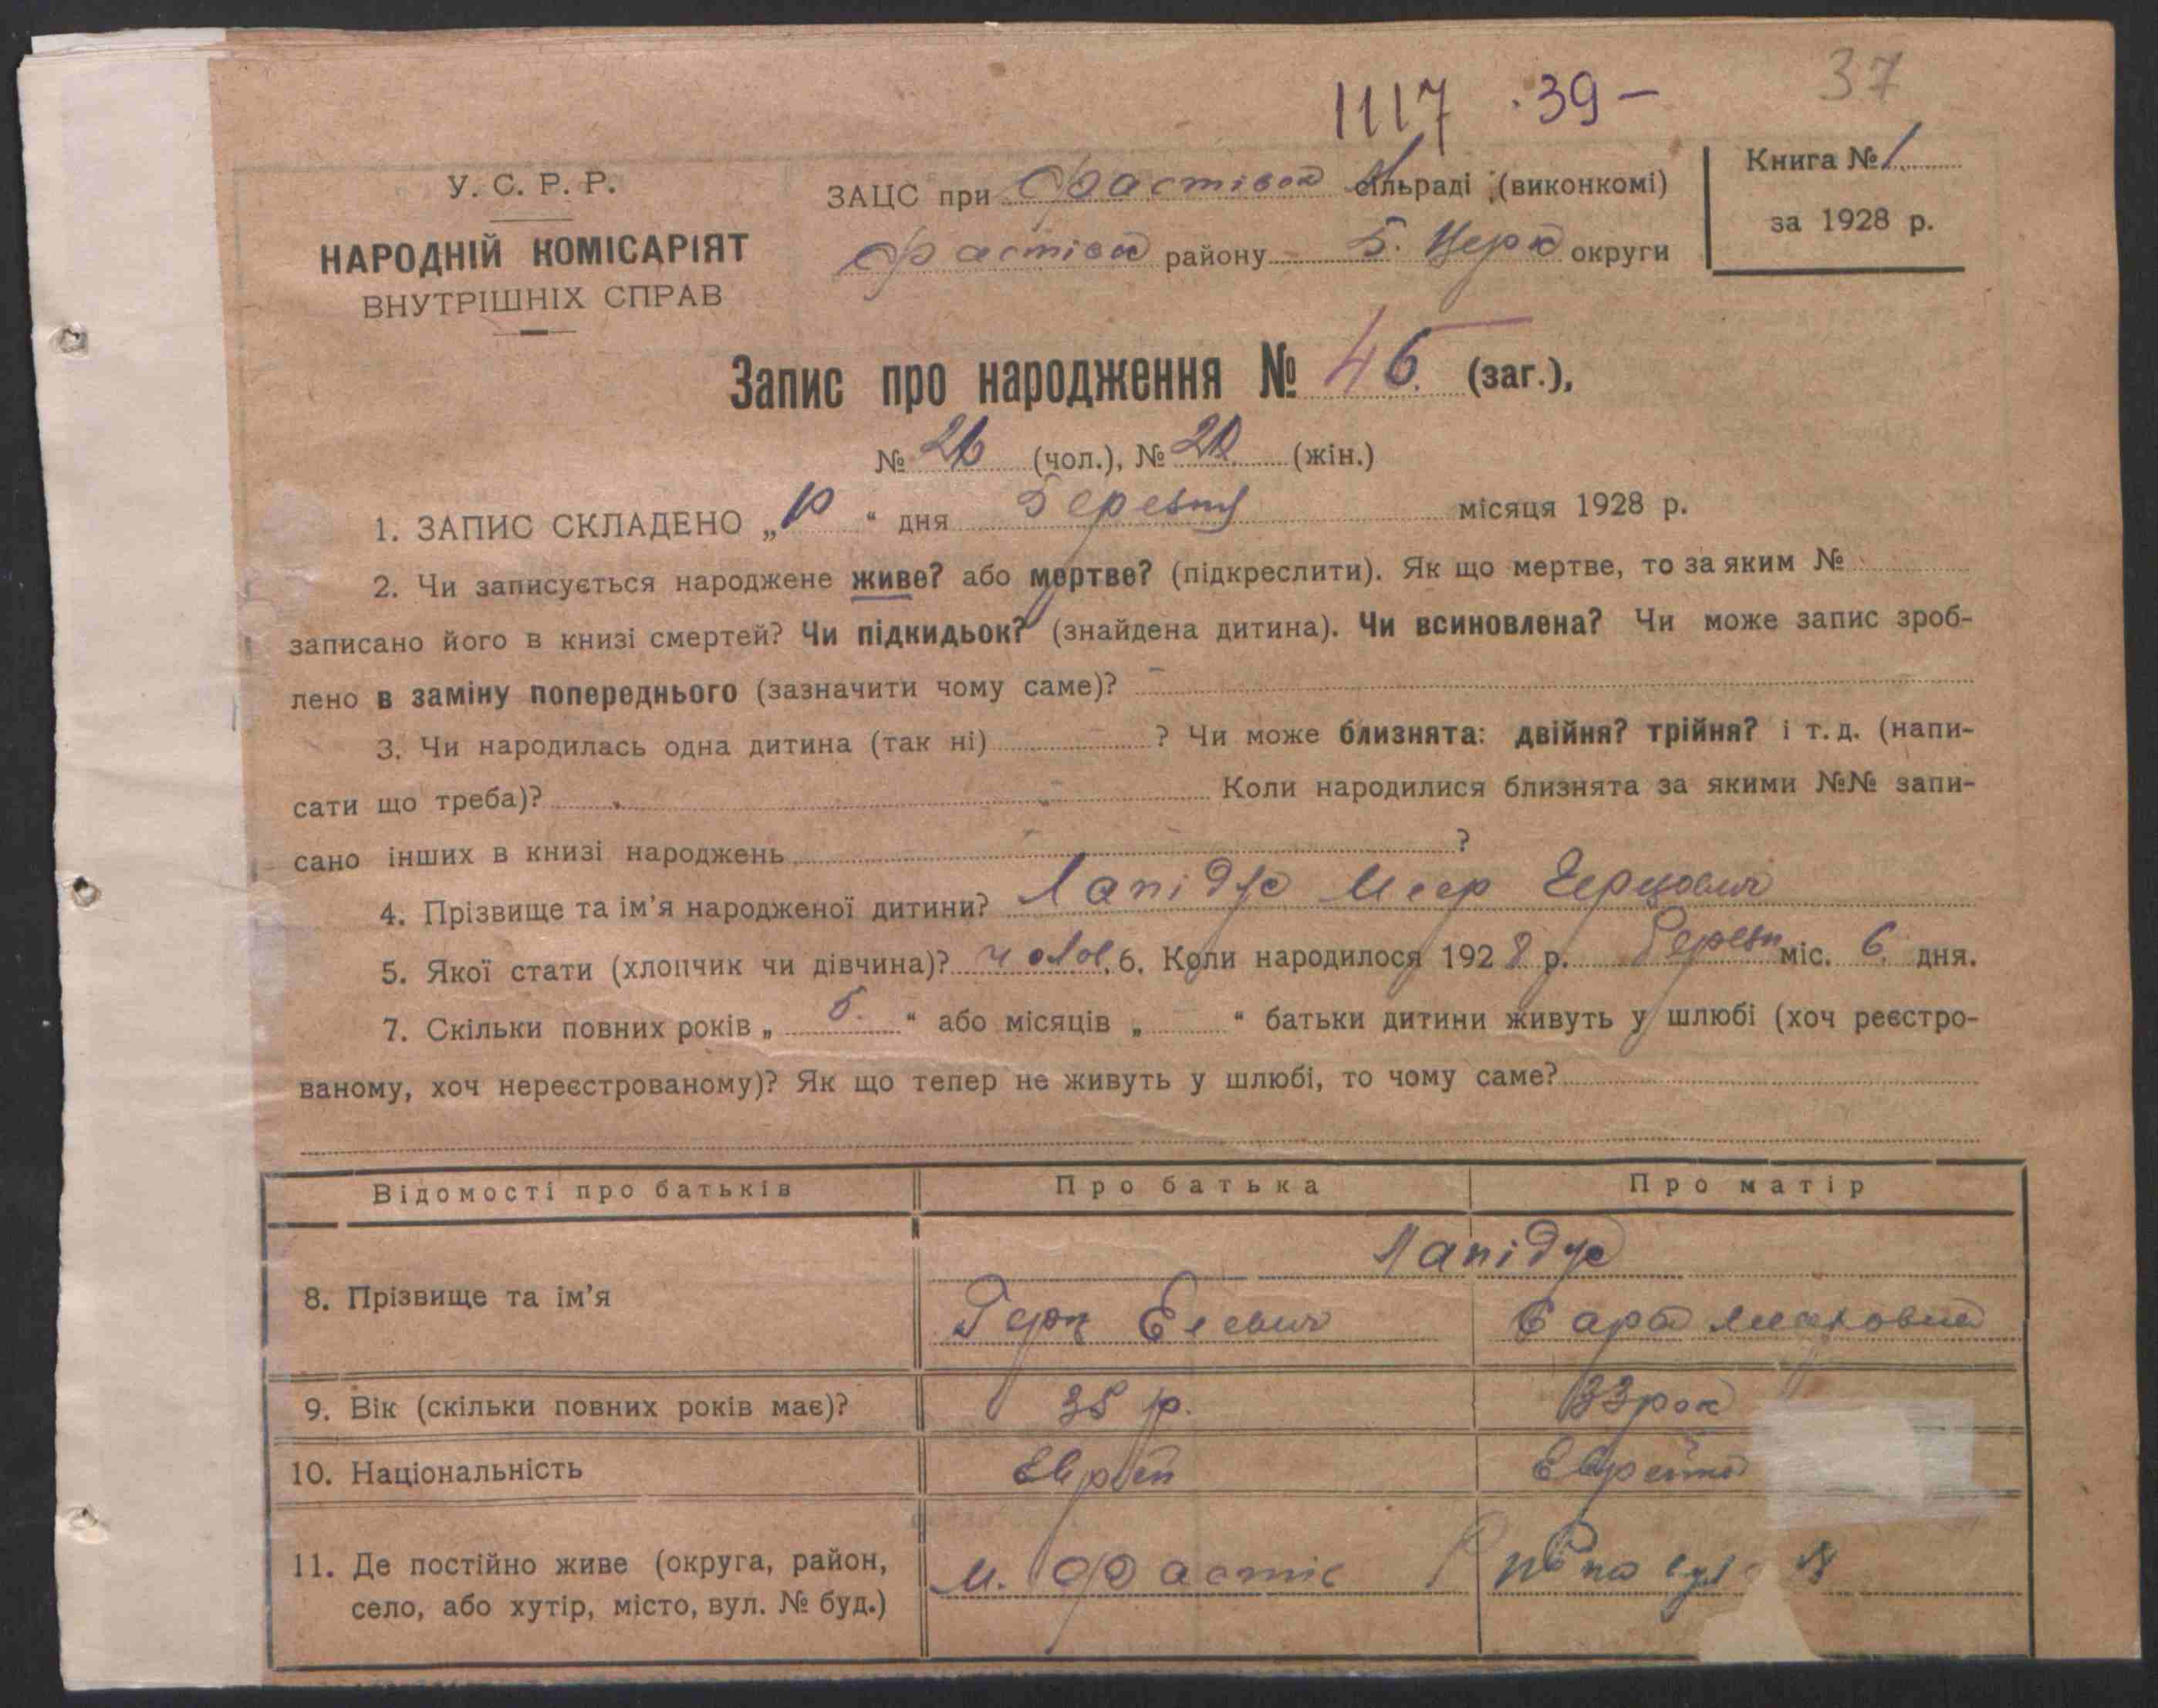 37
1117 . 39 –
У. С. Р. Р.
НАРОДНІЙ КОМІСАРІЯТ
ВНУТРІШНІХ СПРАВ
ЗАЦС при Фастівск сільраді (виконкомі)
Фастівск району Б. Церк округи
Книга № 1
за 1928 р.
Запис про народження № 46. (заг.),
№ 26 (чол.), № 20 (жін.)
1. ЗАПИС СКЛАДЕНО „ “ дня Березня місяця 1928 р.
2. Чи записується народжене живе? або мертве? (підкреслити). Як що мертве, то за яким №
записано його в книзі смертей? Чи підкидьок? (знайдена дитина). Чи всиновлена? Чи може запис зроб-
лено в заміну попереднього (зазначити чому саме)? –
3. Чи народилась одна дитина (так ні) ? Чи може близнята: двійня? трійня? і т. д. (напи-
сати що треба)? Коли народилися близнята за якими №№ запи-
сано інших в книзі народжень ?
4. Прізвище та ім’я народженої дитини? Лапідус Меер Герцович
5. Якої стати (хлопчик чи дівчина)? чолов. 6. Коли народилося 1928 р. Березн міс. 6. дня.
7. Скільки повних років „ 5. “ або місяців „ “ батьки дитини живуть у шлюбі (хоч реєстро-
ваному, хоч нереєстрованому)? Як що тепер не живуть у шлюбі, то чому саме?
Відомості про батьків Про батька Про матір
Лапідус
8. Прізвище та ім’я Герц Сара
9. Вік (скільки повних років має)? 35 р. 33 рок
10. Національність Еврей Еврейка
11. Де постійно живе (округа, район,
село, або хутір, місто, вул. № буд.) м. Фастів